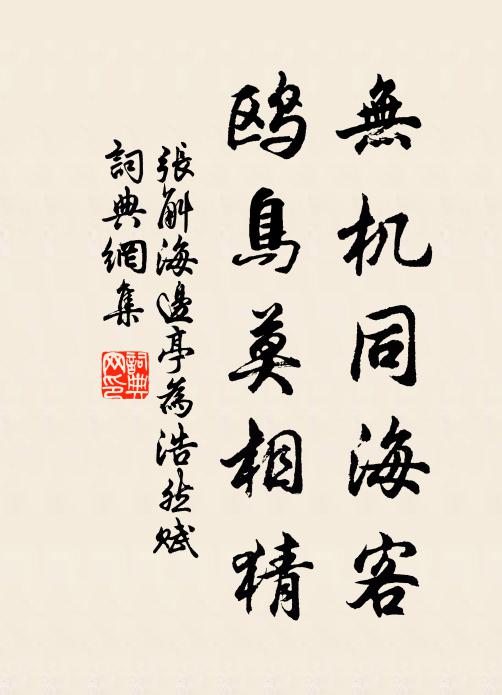 無机同海客
鸥鳥莫相猜
張斛海邊亭為浩然赋
詞典網集
詞典网印